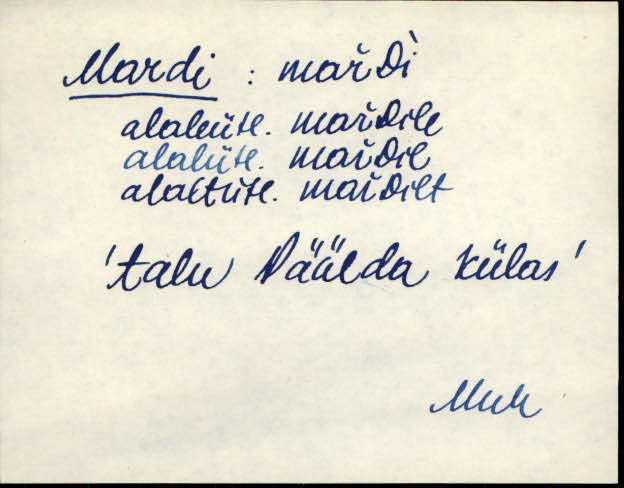 Mardi : mař​Di
alaleüt. mařDile
alalüt. mařDil
alaltüt. mařDilt
'talu Päälda külas'
Muh